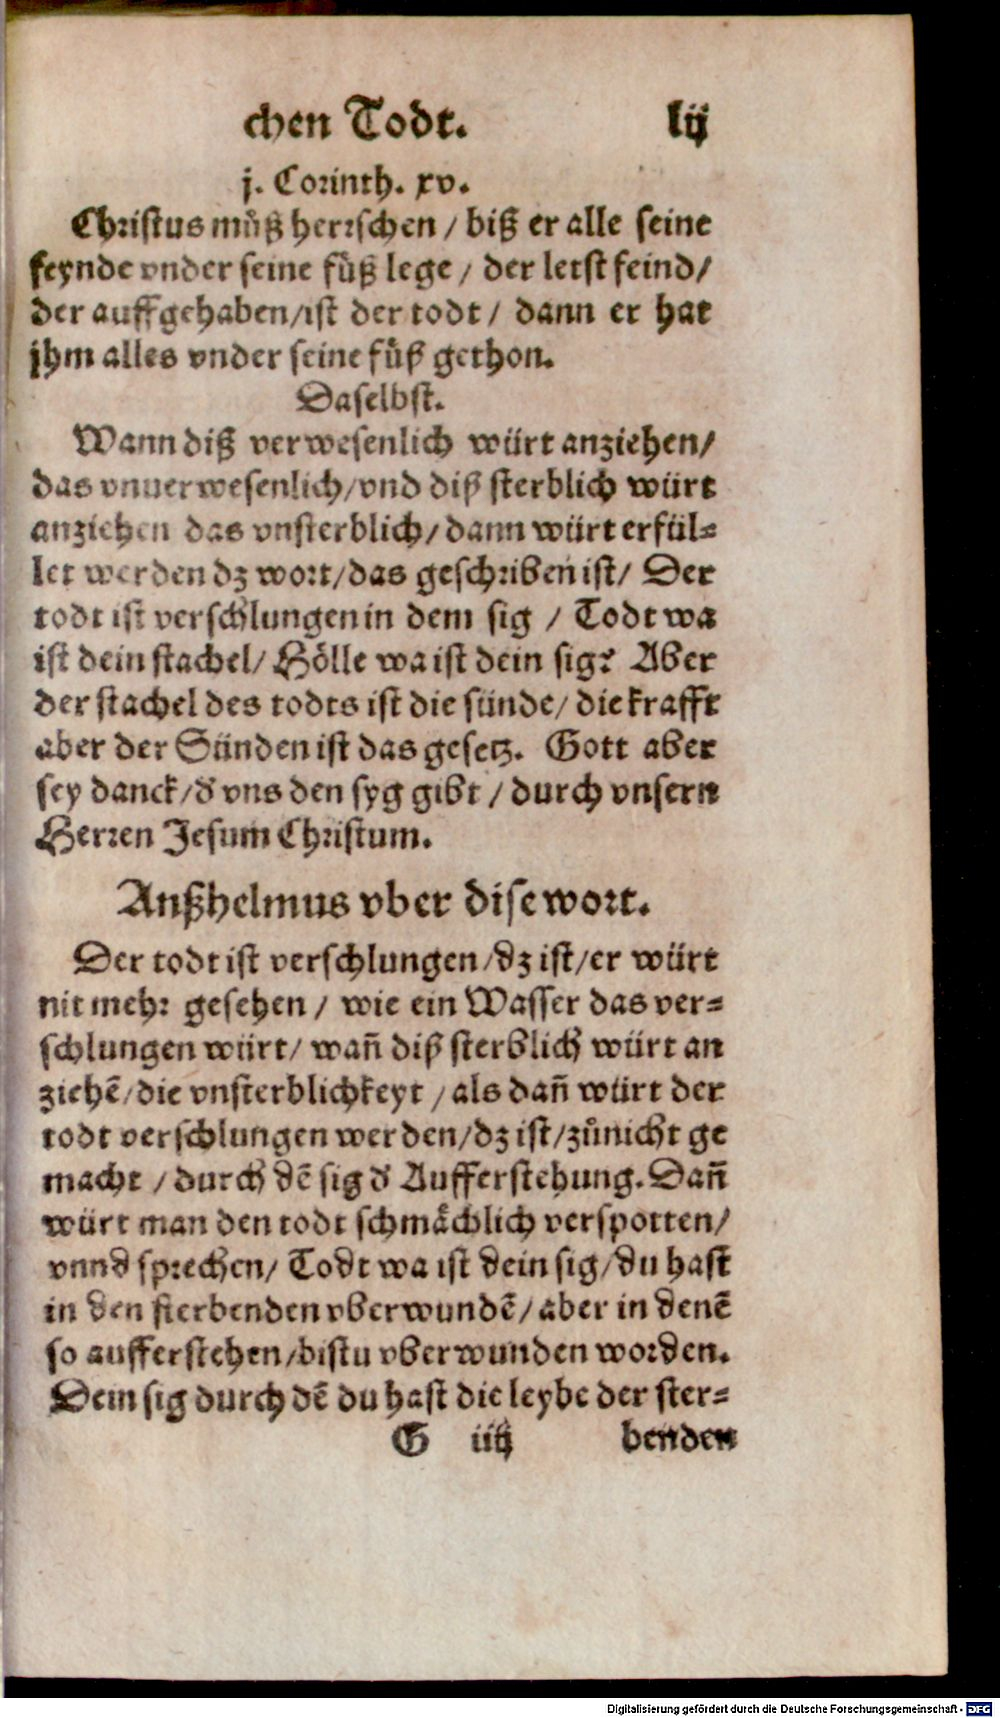 chen Todt. lij
j. Corinth. xv.
Christus můß herrschen / biß er alle seine
feynde vnder seine füß lege / der letst feind/
der auffgehaben/ist der todt / dann er hat
jhm alles vnder seine füß gethon.
Daselbst.
Wann diß verwesenlich würt anziehen/
das vnuerwesenlich/vnd diß sterblich würt
anziehen das vnsterblich/dann würt erfül⸗
let werden dz wort/das geschriben ist/ Der
todt ist verschlungen in dem sig / Todt wa
ist dein stachel/ Hölle wa ist dein sig? Aber
der stachel des todts ist die sünde/ die krafft
aber der Sünden ist das gesetz. Gott aber
sey danck/d' vns den syg gibt / durch vnsern
Herren Jesum Christum.
Anßhelmus vber dise wort.
Der todt ist verschlungen/dz ist/er würt
nit mehr gesehen / wie ein Wasser das ver⸗
schlungen würt/ wañ diß sterblich würt an
ziehẽ/die vnsterblichkeyt / als dañ würt der
todt verschlungen werden/dz ist/zůnicht ge
macht / durch dẽ sig d' Aufferstehung. Dañ
würt man den todt schmaͤchlich verspotten/
vnnd sprechen/ Todt wa ist dein sig/du hast
in den sterbenden vberwundẽ/aber in denẽ
so aufferstehen/bistu vberwunden worden.
Dein sig durch dẽ du hast die leybe der ster⸗
G iiij benden
Digitalisierung gefördert durch die Deutsche Forschungsgemeinschaft - DFG